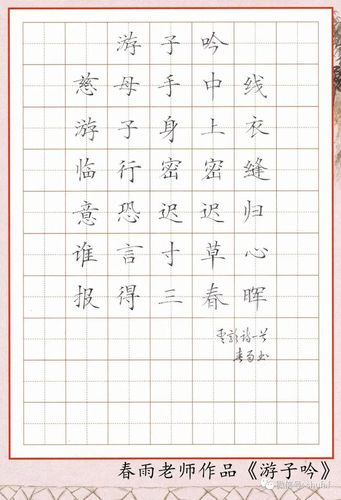 游子吟
慈母手中线
游子身上衣
临行密密缝
意恐迟迟归
谁言寸草心
报得三春晖
春雨书
春雨老师作品《游子吟》